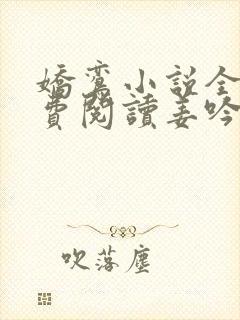 嬌鸞小説全
費閱讀姜吟
吹落塵